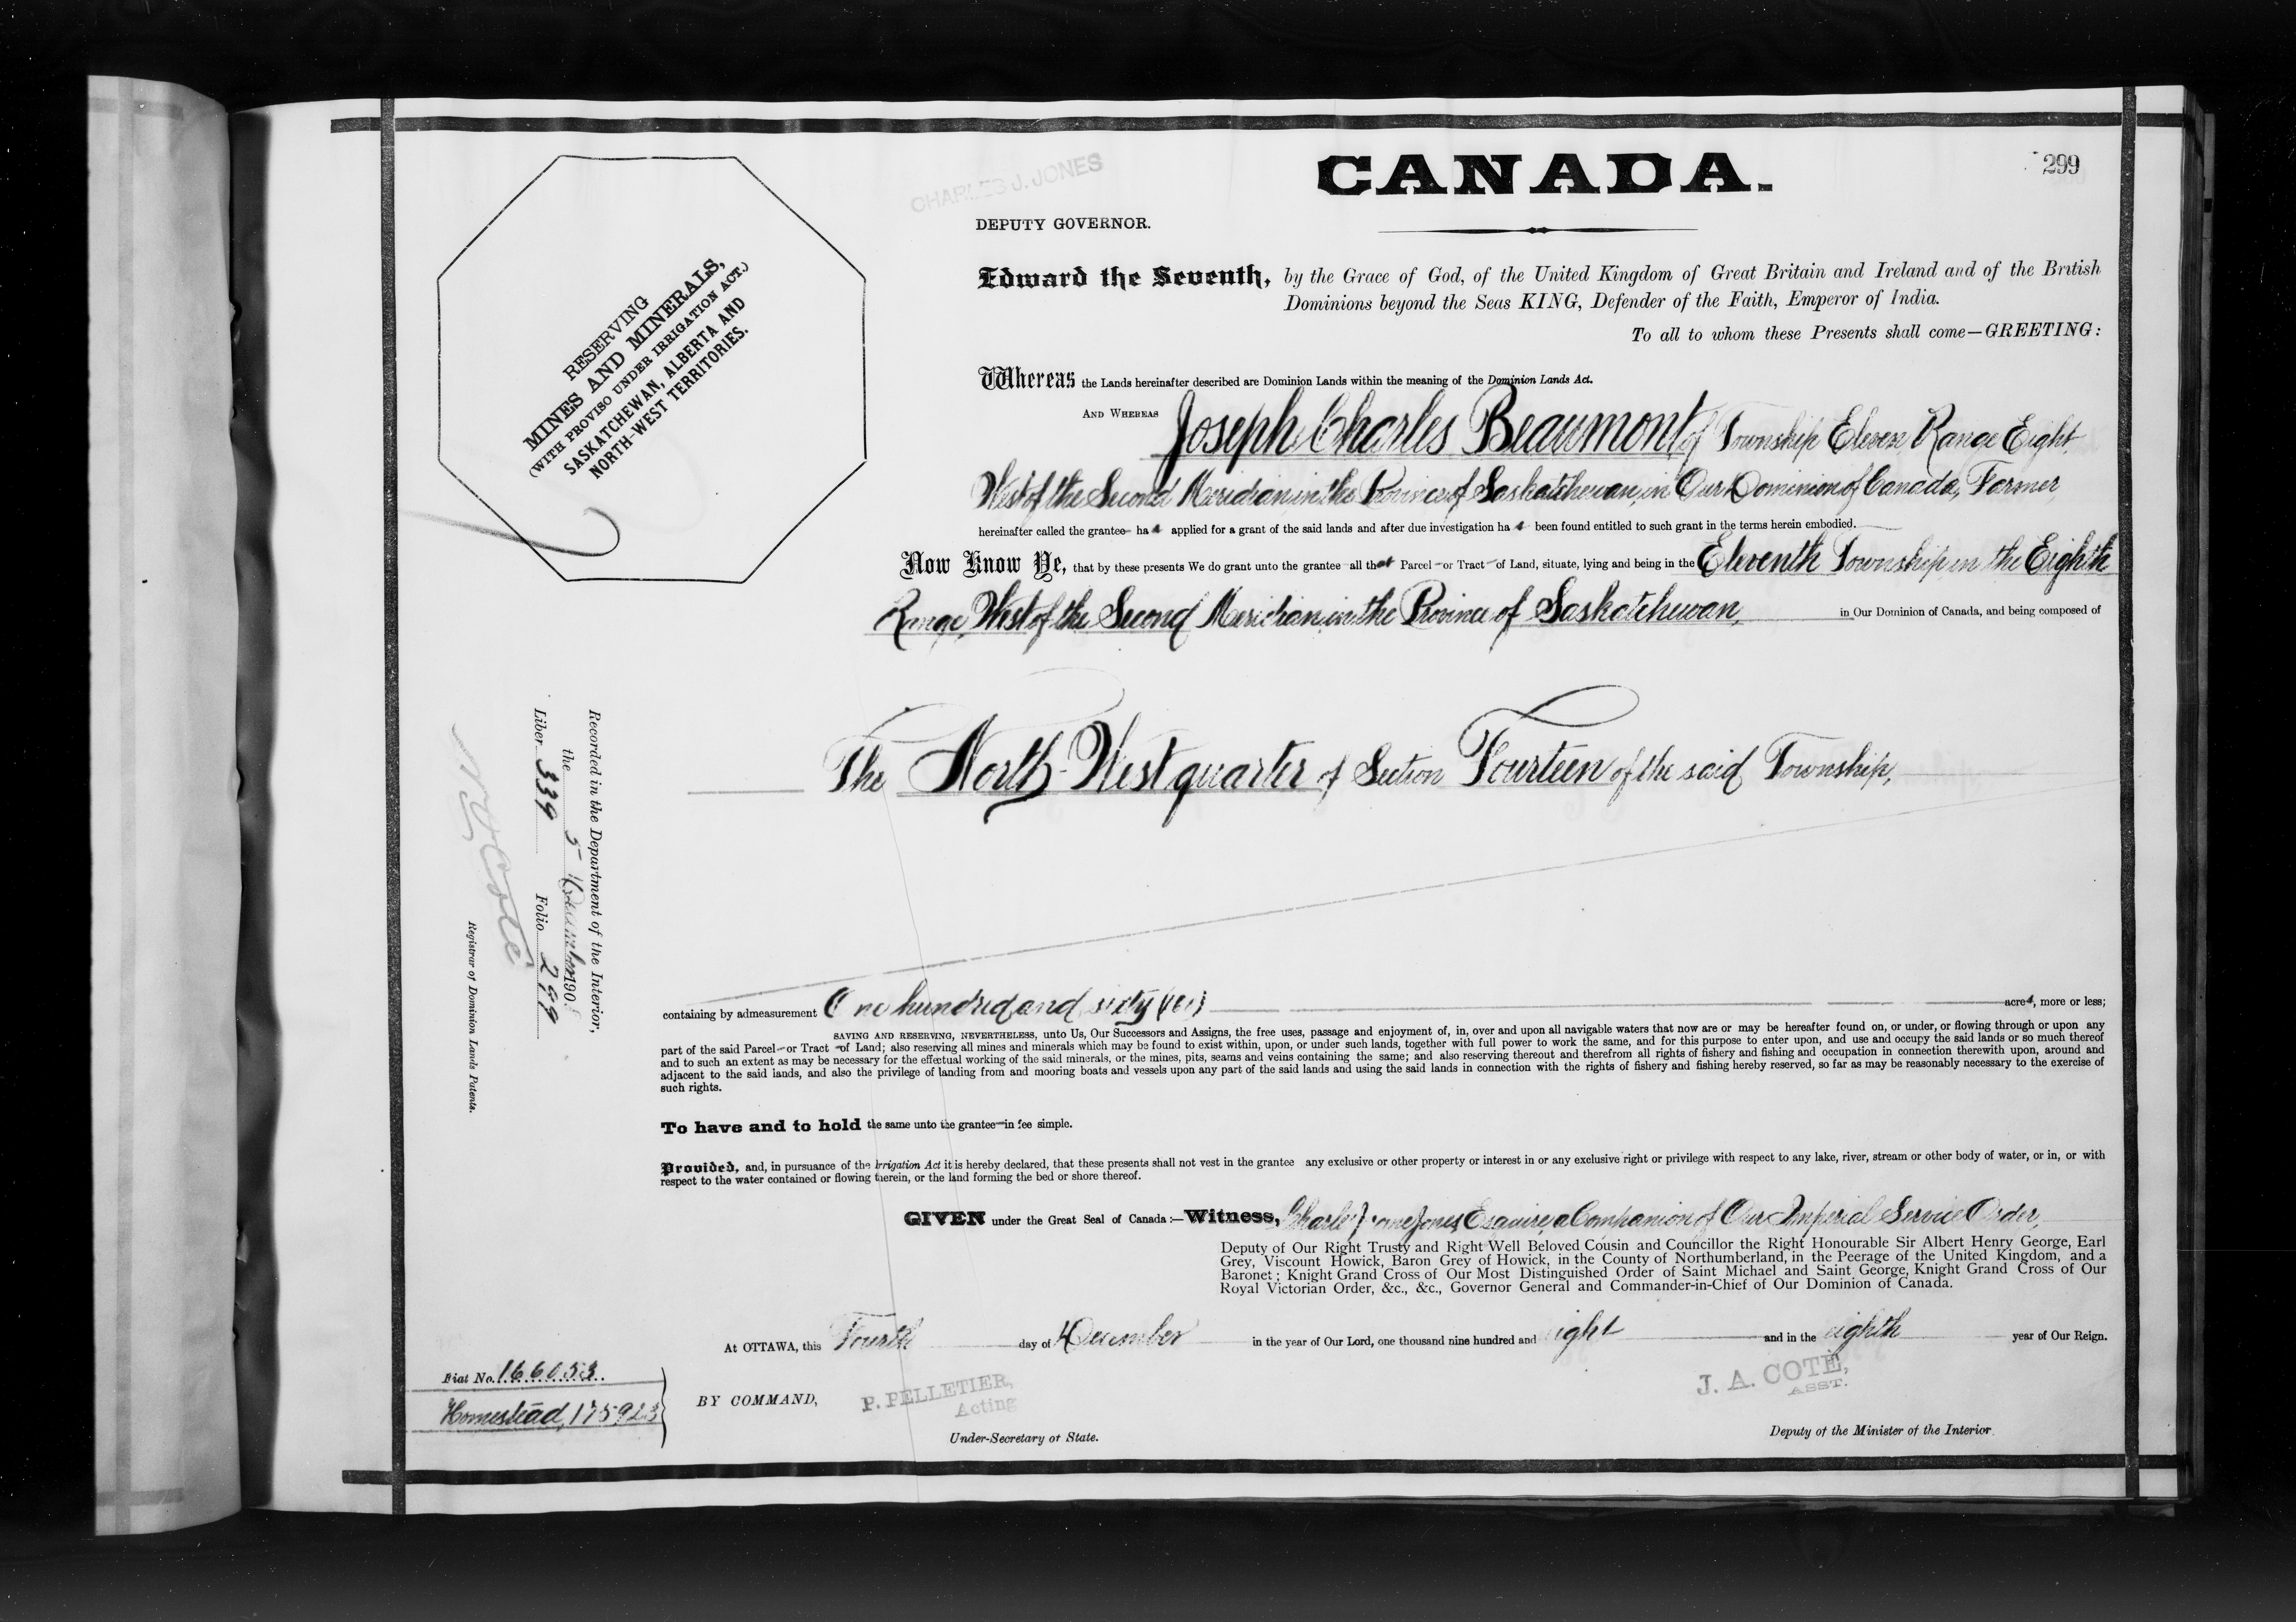 CHARLES J. JONES
CANADA.
299
DEPUTY GOVERNOR.
Edward the Seventh, by the Grace of God, of the United Kingdom of Great Britain and Ireland and of the British
Dominions beyond the Seas KING, Defender of the Faith, Emperor of India.
To all to whom these Presents shall come—GREETING:
RESERVING
MINES AND MINERALS,
(WITH PROVISO UNDER IRRIGATION ACT.)
SASKATCHEWAN, ALBERTA AND
NORTH-WEST TERRITORIES.
Whereas the Lands hereinafter described are Dominion Lands within the meaning of the Dominion Lands Act.
AND WHEREAS Joseph Charles Beaumont of Township Eleven Range Eight
West of the Second Meridian in the Province of Saskatchewan, in Our Dominion of Canada, Farmer
hereinafter called the grantee has applied for a grant of the said lands and after due investigation has been found entitled to such grant in the terms herein embodied.
Now Know Ye, that by these presents We do grant unto the grantee all that Parcel or Tract of Land, situate, lying and being in the Eleventh Township in the Eighth
Range, West of the Second Meridian, in the Province of Saskatchewan, in Our Dominion of Canada, and being composed of
The North-West quarter of Section Fourteen of the said Township,
Recorded in the Department of the Interior,
the 5 December 190
Liber 339 Folio 299
N O Coté
Registrar of Dominion Lands Patents.
containing by admeasurement One hundred and sixty (160) acres, more or less;
SAVING AND RESERVING, NEVERTHELESS, unto Us, Our Successors and Assigns, the free uses, passage and enjoyment of, in, over and upon all navigable waters that now are or may be hereafter found on, or under, or flowing through or upon any
part of the said Parcel or Tract of Land; also reserving all mines and minerals which may be found to exist within, upon, or under such lands, together with full power to work the same, and for this purpose to enter upon, and use and occupy the said lands or so much thereof
and to such an extent as may be necessary for the effectual working of the said minerals, or the mines, pits, seams and veins containing the same; and also reserving thereout and therefrom all rights of fishery and fishing and occupation in connection therewith upon, around and
adjacent to the said lands, and also the privilege of landing from and mooring boats and vessels upon any part of the said lands and using the said lands in connection with the rights of fishery and fishing hereby reserved, so far as may be reasonably necessary to the exercise of
such rights.
To have and to hold the same unto the grantee in fee simple.
Provided, and, in pursuance of the Irrigation Act it is hereby declared, that these presents shall not vest in the grantee any exclusive or other property or interest in or any exclusive right or privilege with respect to any lake, river, stream or other body of water, or in, or with
respect to the water contained or flowing therein, or the land forming the bed or shore thereof.
GIVEN under the Great Seal of Canada:—Witness, Charles Jones, Esquire, a Companion of Our Imperial Service Order,
Deputy of Our Right Trusty and Right Well Beloved Cousin and Councillor the Right Honourable Sir Albert Henry George, Earl
Grey, Viscount Howick, Baron Grey of Howick, in the County of Northumberland, in the Peerage of the United Kingdom, and a
Baronet; Knight Grand Cross of Our Most Distinguished Order of Saint Michael and Saint George, Knight Grand Cross of Our
Royal Victorian Order, &c., &c., Governor General and Commander-in-Chief of Our Dominion of Canada.
At OTTAWA, this Fourth day of December in the year of Our Lord, one thousand nine hundred and eight and in the eighth year of Our Reign.
Fiat No. 166053
Homestead, 175923
BY COMMAND,
P. PELLETIER,
Acting
Under-Secretary of State.
J. A. COTÉ,
ASST.
Deputy of the Minister of the Interior